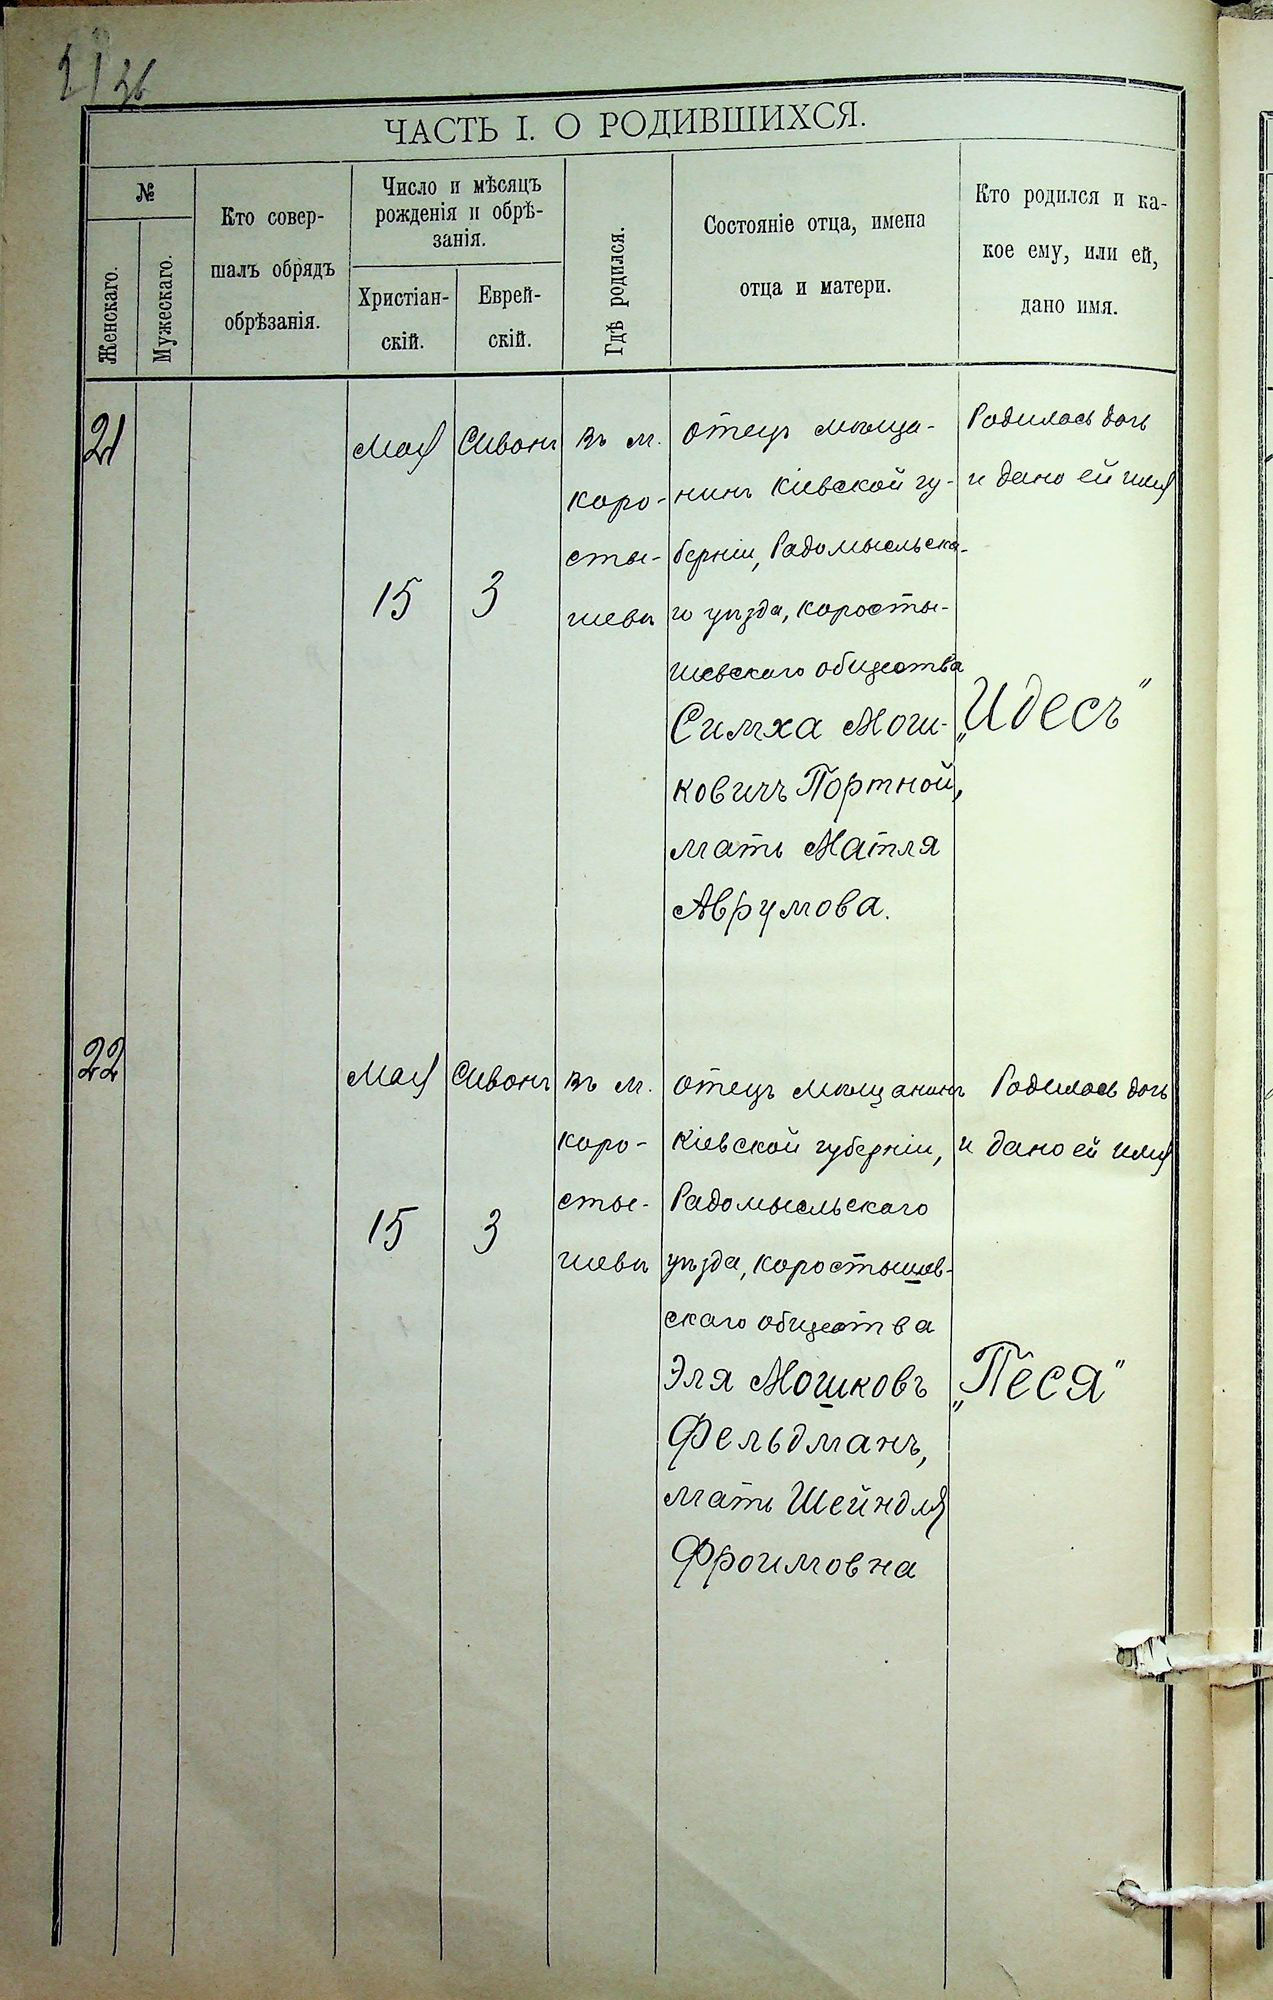 21 36
ЧАСТЬ I. О РОДИВШИХСЯ.
№
Женскаго.
Мужескаго.
Кто совер-
шалъ обрядъ
обрѣзанія.
Число и мѣсяцъ
рожденія и обрѣ-
занія.
Христіан-
скій.
Еврей-
скій.
Гдѣ родился.
Состояніе отца, имена
отца и матери.
Кто родился и ка-
кое ему, или ей,
дано имя.
21
Мая
15
Сивонъ
3
Въ м.
Коро-
сты-
шевѣ
Отецъ мѣща-
нинъ Кіевской гу-
берніи, Радомысльска-
го уѣзда, Коросты-
шевскаго общества
Симха Мош-
ковичъ Портной,
мать Матля
Аврумова.
Родилась дочь
и дано ей имя
„Идесъ"
22
Мая
15
Сивонъ
3
Въ м.
Коро-
сты-
шевѣ
Отецъ мѣщанинъ
Кіевской губерніи,
Радомысльскаго
уѣзда, Коростышев-
скаго общества
Эля Мошковъ
Фельдманъ,
мать Шейндля
Фроимовна
Родилась дочь
и дано ей имя
„Песя"